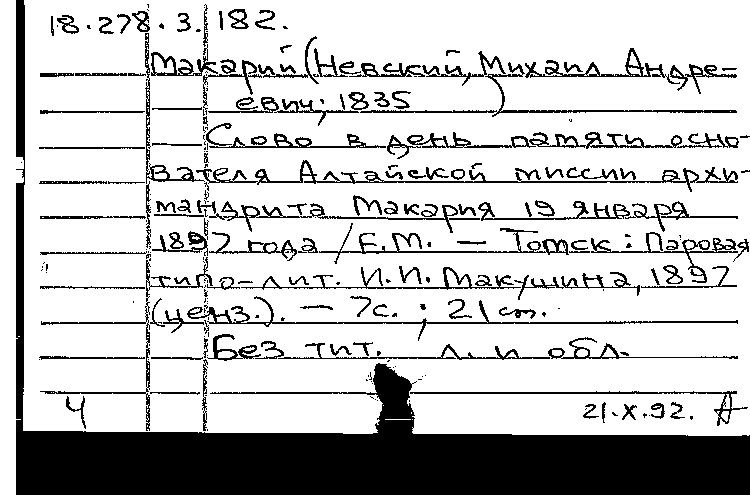 18.278.3.182.
Макарий (Невский, Михаил Андре-
евич; 1835 )
Слово в день памяти осно-
вателя Алтайской миссии архи-
мандрита Макария 19 января
1897 года / Е.М. — Томск: Паровая
типо-лит. И.И. Макушина, 1897
(ценз.). — 7с. ; 21 cm.
Без тит. л. и обл.
Ч 21.X.92. А